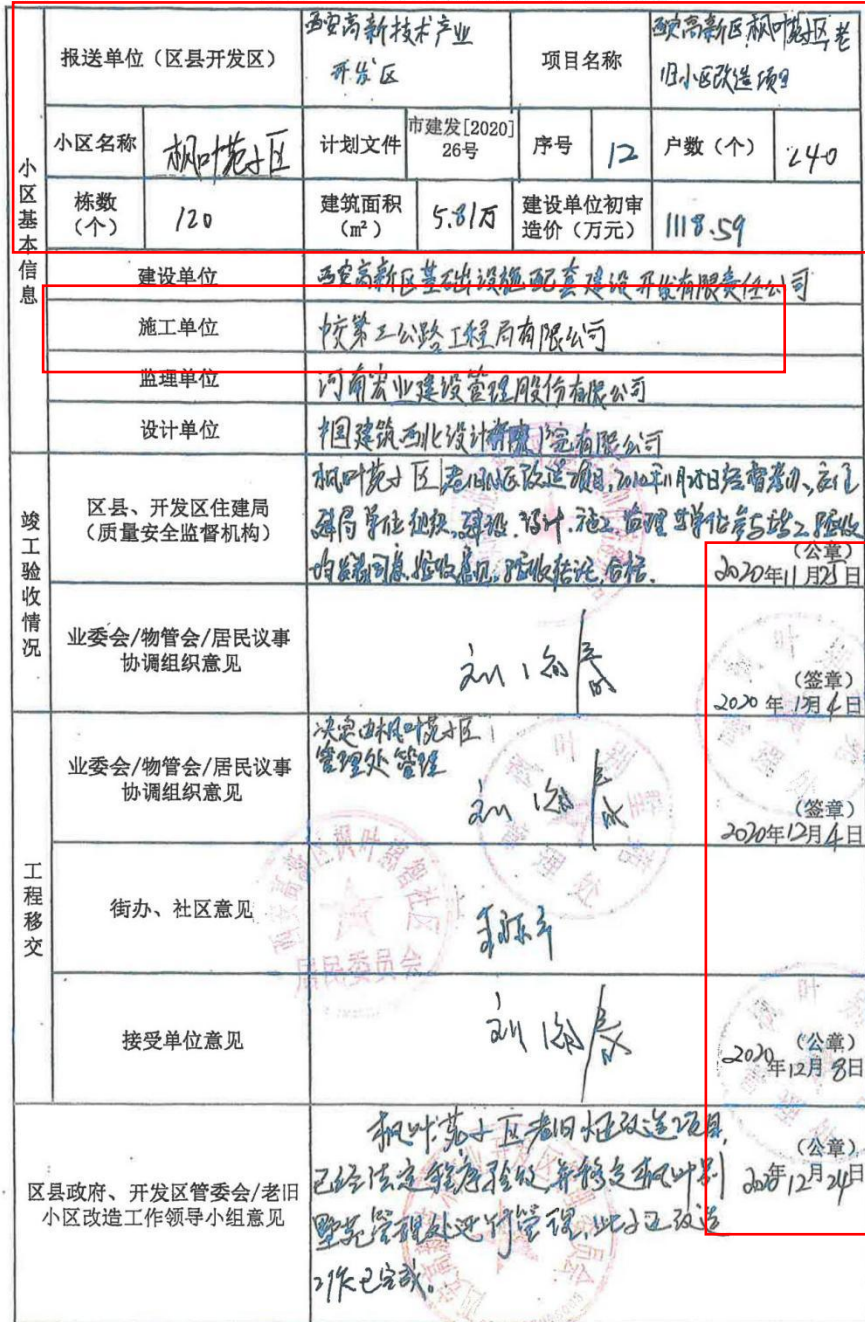 小区基本信息
报送单位（区县开发区）
西安高新技术产业
开发区
项目名称
西安高新区枫叶苑小区老
旧小区改造项目
小区名称
枫叶苑小区
计划文件
市建发[2020]
26号
序号
12
户数（个）
240
栋数
（个）
120
建筑面积
（m²）
5.81万
建设单位初审
造价（万元）
1118.59
建设单位
西安高新区基础设施配套建设开发有限责任公司
施工单位
中交第二公路工程局有限公司
监理单位
河南宏业建设管理股份有限公司
设计单位
中国建筑西北设计研究院有限公司
竣工验收情况
区县、开发区住建局
（质量安全监督机构）
枫叶苑小区老旧小区改造项目，2020年11月25日经
建设、设计、施工、监理等单位参与竣工验收
均发表同意验收意见，验收结论：合格。
（公章）
2020年11月25日
业委会/物管会/居民议事
协调组织意见
（签章）
2020年12月4日
工程移交
业委会/物管会/居民议事
协调组织意见
决定由枫叶苑小区
管理处管理
（签章）
2020年12月4日
街办、社区意见
西安高新区枫叶社区
居民委员会
接受单位意见
（公章）
2020年12月8日
区县政府、开发区管委会/老旧
小区改造工作领导小组意见
枫叶苑小区老旧小区改造项目，
已经法定程序验收，并移交枫叶别
墅苑管理处进行管理，此小区改造
工作已完成。
（公章）
2020年12月24日